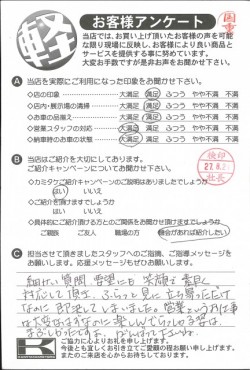 軽
お客様アンケート
当店では、お買い上げ頂いたお客様の声を可能
な限り現場に反映し、お客様により良い商品と
サービスを提供する事に努めています。
大変お手数ですが是非お声をお聞かせ下さい。
A 当店を実際にご利用になった印象をお聞かせ下さい。
◇店の印象 大満足 満足 ふつう やや不満 不満
◇店内・展示場の清掃 大満足 満足 ふつう やや不満 不満
◇お車の品揃え 大満足 満足 ふつう やや不満 不満
◇営業スタッフの対応 大満足 満足 ふつう やや不満 不満
◇納車時のお車の状態 大満足 満足 ふつう やや不満 不満
B 当店はご紹介を大切にしております。
ご紹介キャンペーンについてお聞かせ下さい。
◇カミタケご紹介キャンペーンのご説明はありましたでしょうか
はい いいえ
◇ご紹介頂けますでしょうか
はい いいえ
◇具体的にご紹介頂ける方とのご関係をお聞かせ頂けますでしょうか
ご親族 ご友人 職場の方 機会があれば紹介したい
社長
C 担当させて頂きましたスタッフへのご指摘、ご指導、メッセージを
お願いします。応援メッセージもぜひお願いします。
細かい質問、要望にも笑顔で素早く
対応して頂き、ふらっと見に立ち寄っただけ
なのに即決してしまいました。
ご協力に心よりお礼を申し上げます。
今後とも宜しくお引き立てご愛顧の程お願い申し上げます。
またのご来店を心からお待ちしております。